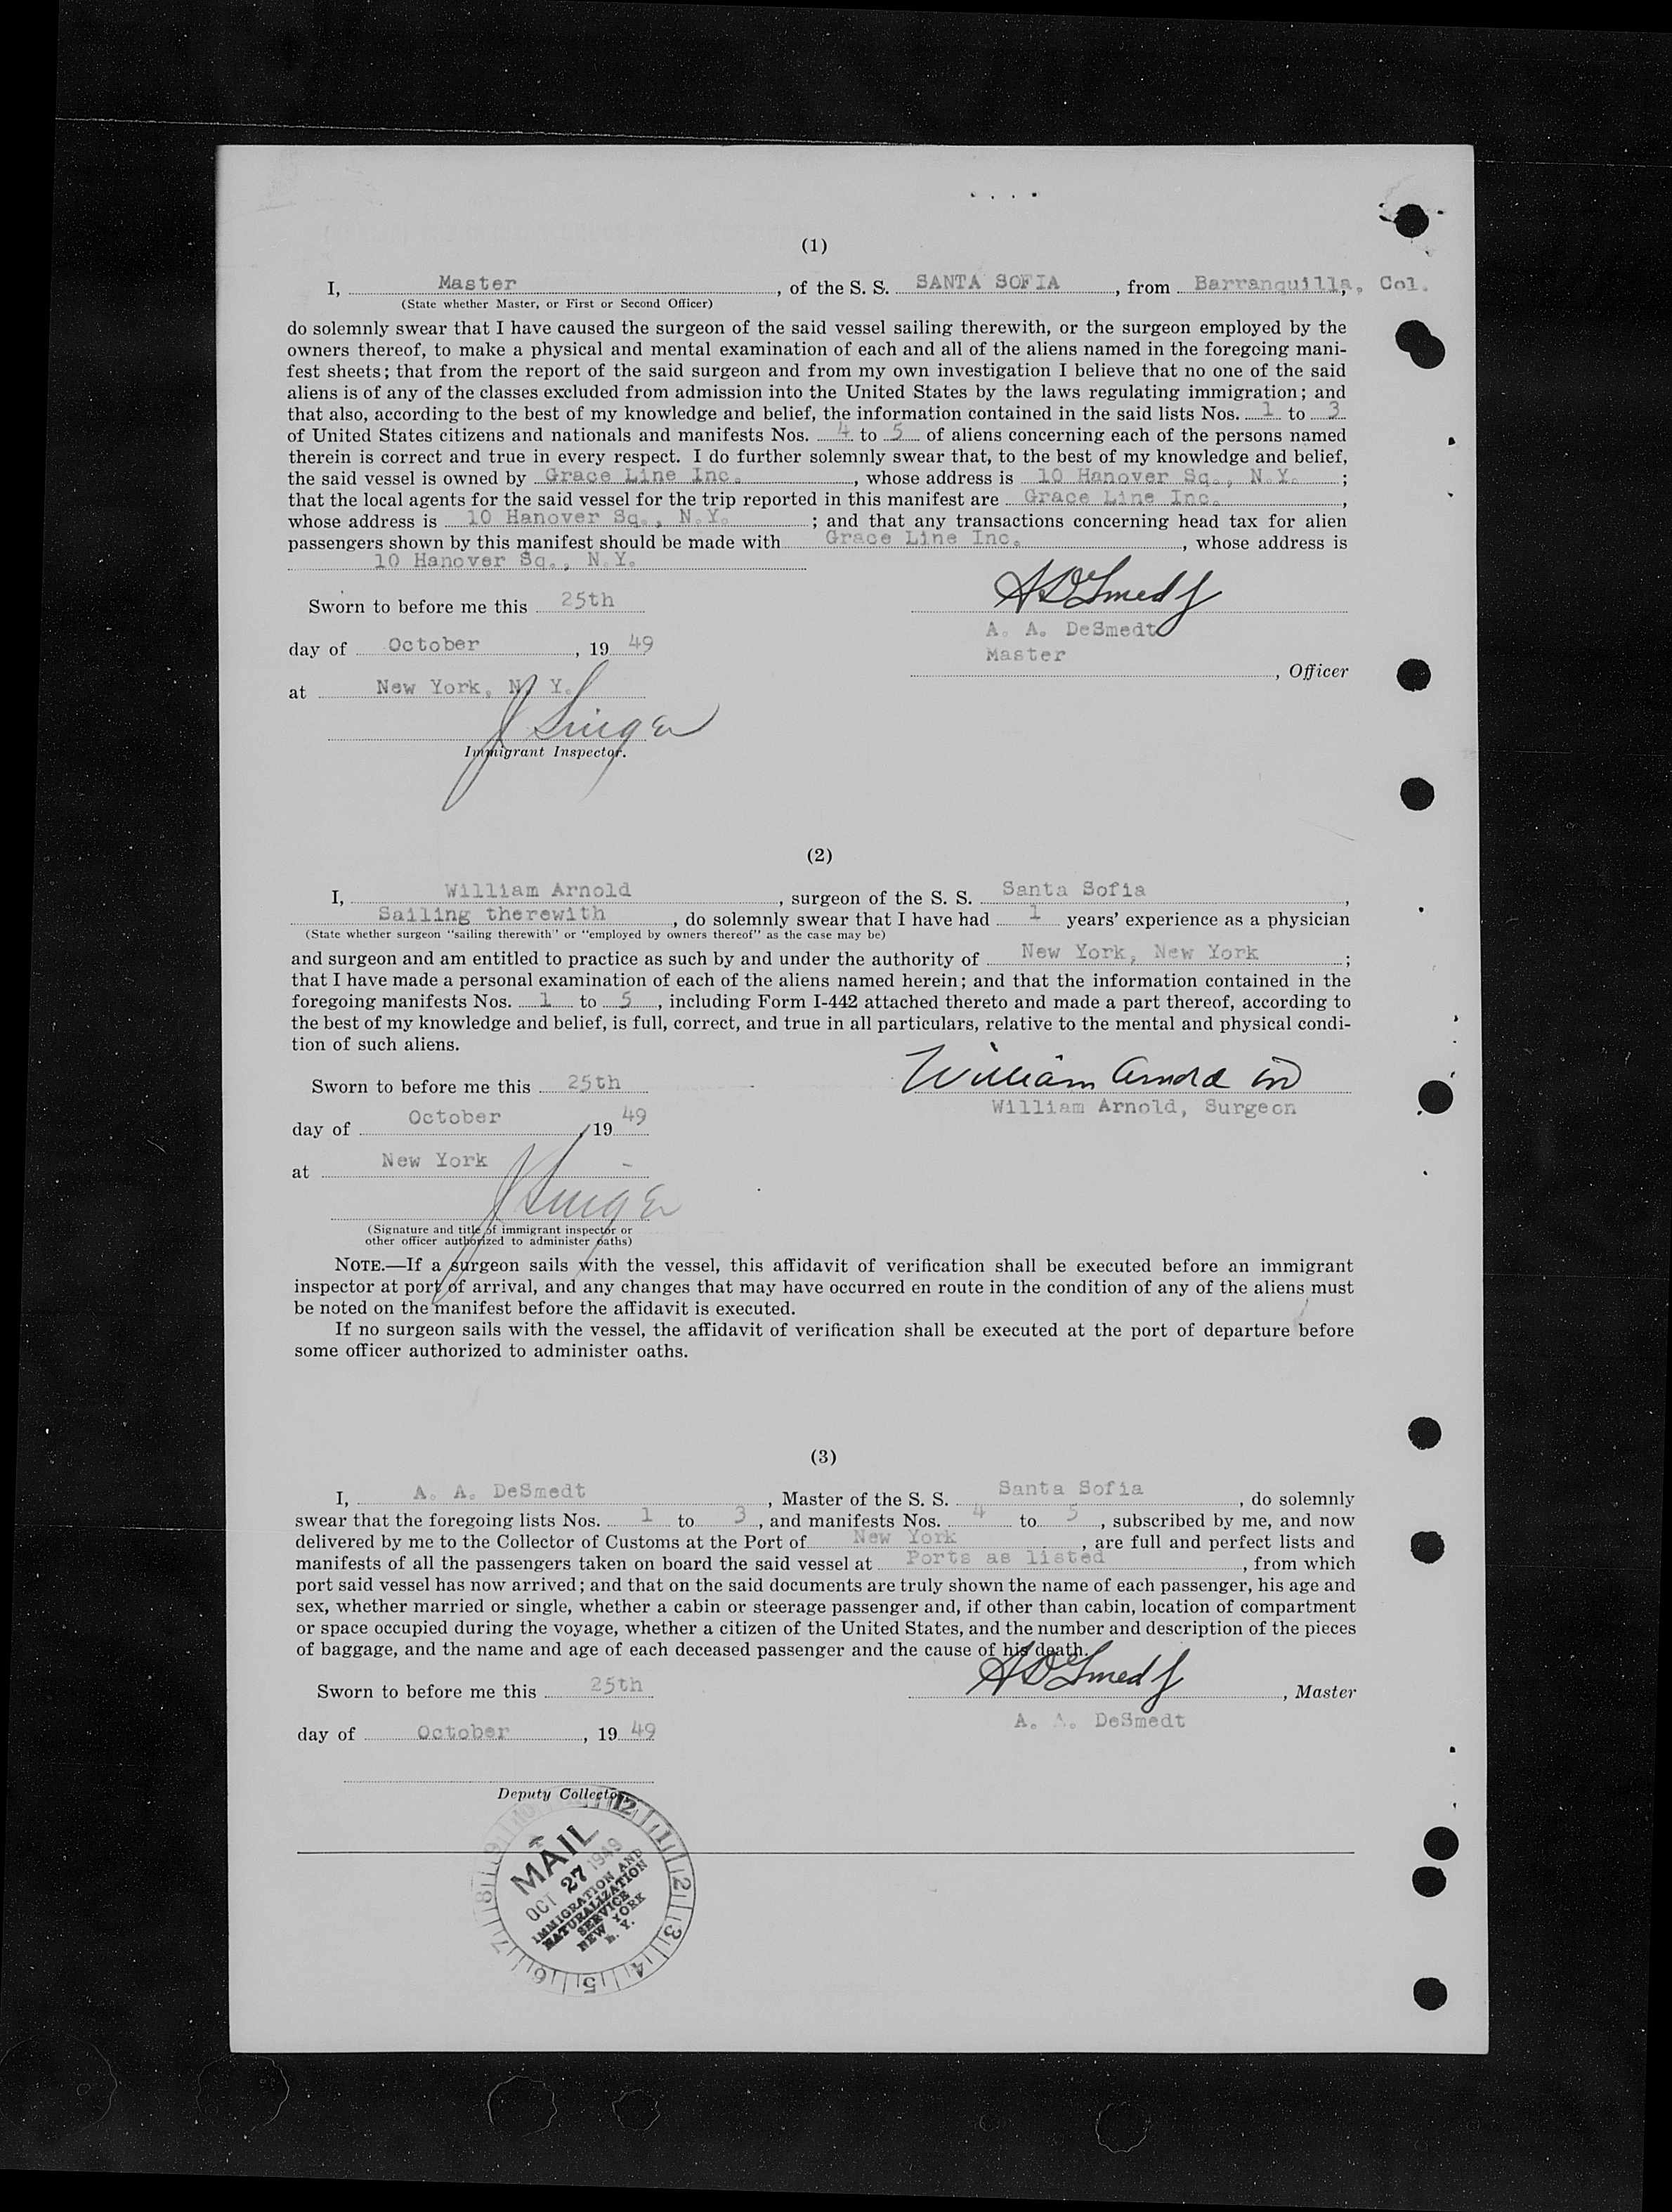 (1)
I, Master , of the S. S. SANTA SOFIA , from Barranquilla, Col.
(State whether Master, or First or Second Officer)
do solemnly swear that I have caused the surgeon of the said vessel sailing therewith, or the surgeon employed by the
owners thereof, to make a physical and mental examination of each and all of the aliens named in the foregoing mani-
fest sheets; that from the report of the said surgeon and from my own investigation I believe that no one of the said
aliens is of any of the classes excluded from admission into the United States by the laws regulating immigration; and
that also, according to the best of my knowledge and belief, the information contained in the said lists Nos. 1 to 3
of United States citizens and nationals and manifests Nos. 4 to 5 of aliens concerning each of the persons named
therein is correct and true in every respect. I do further solemnly swear that, to the best of my knowledge and belief,
the said vessel is owned by Grace Line Inc. , whose address is 10 Hanover Sq., N.Y. ;
that the local agents for the said vessel for the trip reported in this manifest are Grace Line Inc. ,
whose address is 10 Hanover Sq., N.Y. ; and that any transactions concerning head tax for alien
passengers shown by this manifest should be made with Grace Line Inc. , whose address is
10 Hanover Sq., N.Y.
Sworn to before me this 25th
day of October , 19 49
at New York, N. Y.
J Singer
Immigrant Inspector.
A DeSmedt
A. A. DeSmedt
Master
, Officer
(2)
I, William Arnold , surgeon of the S. S. Santa Sofia ,
Sailing therewith , do solemnly swear that I have had 1 years' experience as a physician
(State whether surgeon "sailing therewith" or "employed by owners thereof" as the case may be)
and surgeon and am entitled to practice as such by and under the authority of New York, New York ;
that I have made a personal examination of each of the aliens named herein; and that the information contained in the
foregoing manifests Nos. 1 to 5 , including Form I-442 attached thereto and made a part thereof, according to
the best of my knowledge and belief, is full, correct, and true in all particulars, relative to the mental and physical condi-
tion of such aliens.
Sworn to before me this 25th
day of October , 19 49
at New York
J Singer
(Signature and title of immigrant inspector or
other officer authorized to administer oaths)
William Arnold MD
William Arnold, Surgeon
NOTE.—If a surgeon sails with the vessel, this affidavit of verification shall be executed before an immigrant
inspector at port of arrival, and any changes that may have occurred en route in the condition of any of the aliens must
be noted on the manifest before the affidavit is executed.
If no surgeon sails with the vessel, the affidavit of verification shall be executed at the port of departure before
some officer authorized to administer oaths.
(3)
I, A. A. DeSmedt , Master of the S. S. Santa Sofia , do solemnly
swear that the foregoing lists Nos. 1 to 3 , and manifests Nos. 4 to 5 , subscribed by me, and now
delivered by me to the Collector of Customs at the Port of New York , are full and perfect lists and
manifests of all the passengers taken on board the said vessel at Ports as listed , from which
port said vessel has now arrived; and that on the said documents are truly shown the name of each passenger, his age and
sex, whether married or single, whether a cabin or steerage passenger and, if other than cabin, location of compartment
or space occupied during the voyage, whether a citizen of the United States, and the number and description of the pieces
of baggage, and the name and age of each deceased passenger and the cause of his death.
Sworn to before me this 25th
day of October , 19 49
A DeSmedt
, Master
A. A. DeSmedt
Deputy Collector
12 1 2 3 4 5 6 7 8 9 10
MAIL
OCT 27 1949
IMMIGRATION AND
NATURALIZATION
SERVICE
NEW YORK
N. Y.